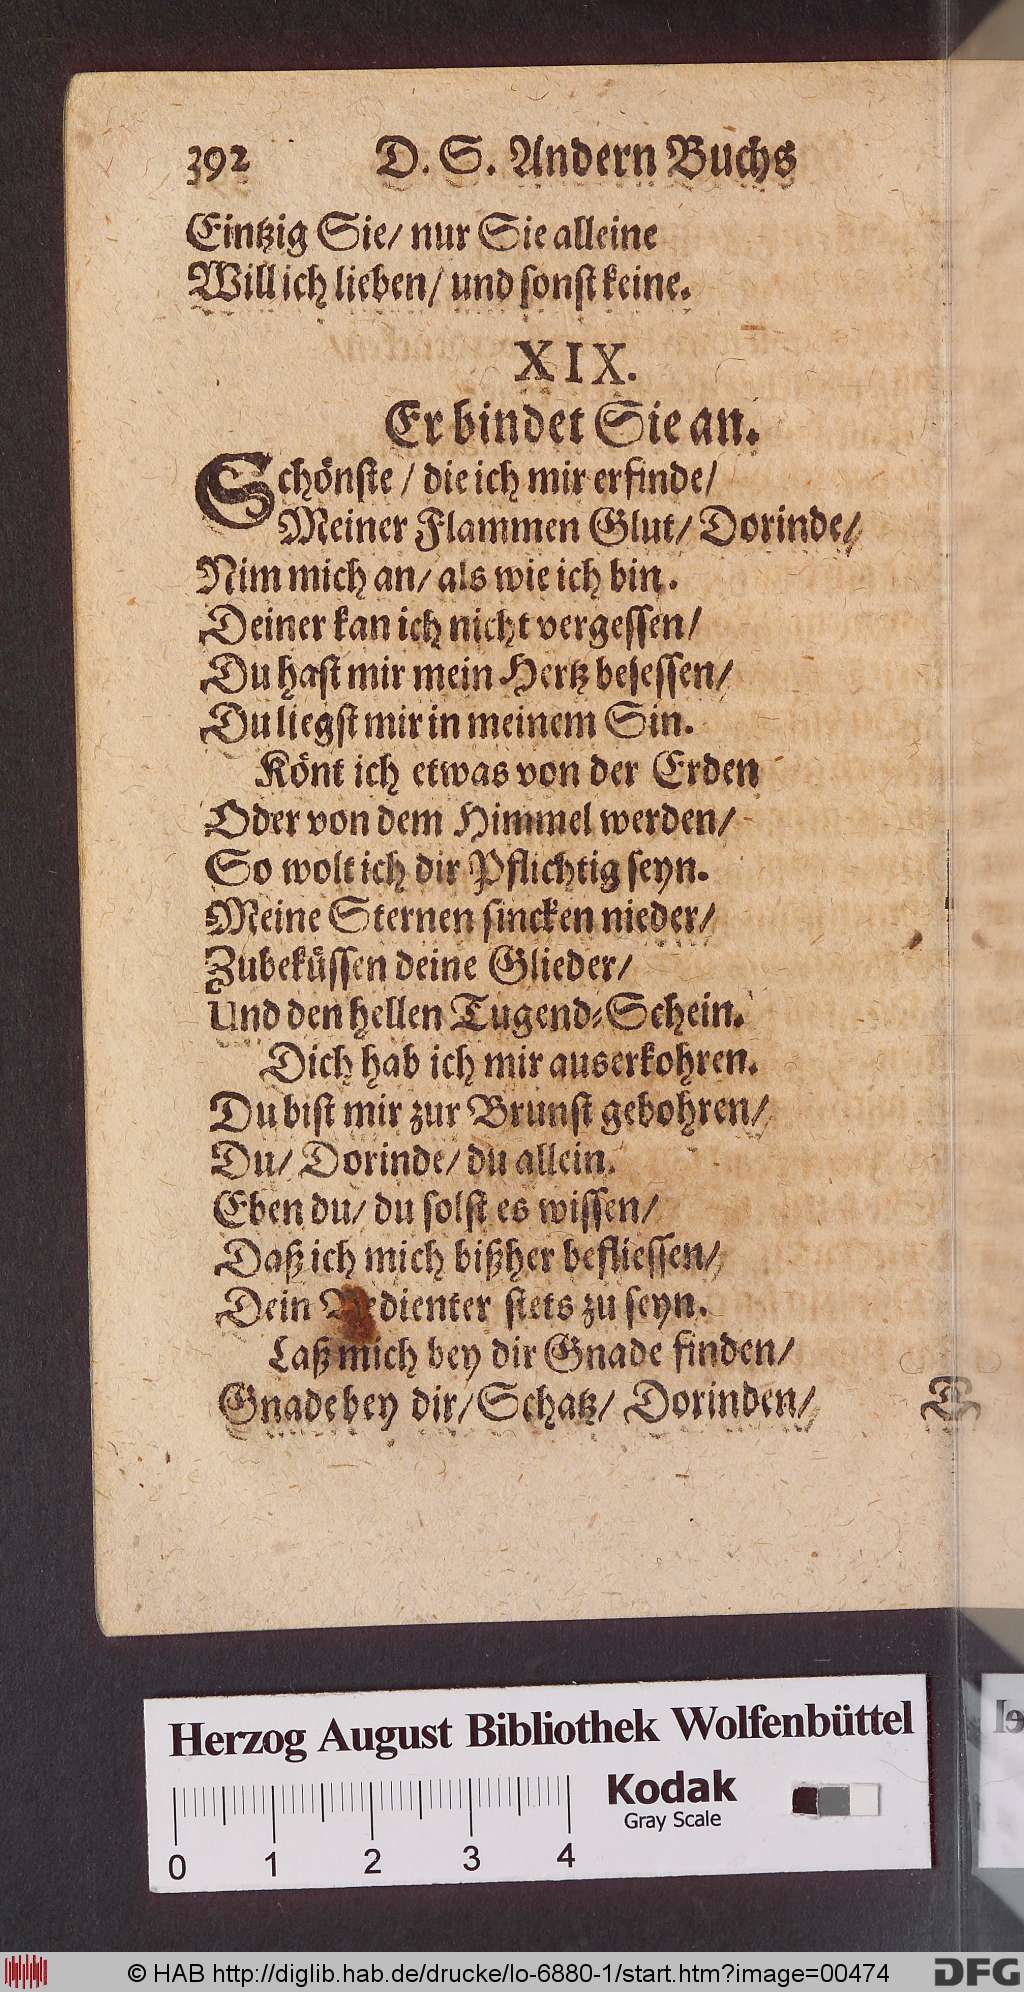 392 D. S. Andern Buchs
Eintzig Sie/ nur Sie alleine
Will ich lieben/ und sonst keine.
XIX.
Er bindet Sie an.
Schönste / die ich mir erfinde/
Meiner Flammen Glut/ Dorinde/
Nim mich an/ als wie ich bin.
Deiner kan ich nicht vergessen/
Du hast mir mein Hertz besessen/
Du liegst mir in meinem Sin.
Könt ich etwas von der Erden
Oder von dem Himmel werden/
So wolt ich dir Pflichtig seyn.
Meine Sternen sincken nieder/
Zubeküssen deine Glieder/
Und den hellen Tugend-Schein.
Dich hab ich mir auserkohren.
Du bist mir zur Brunst gebohren/
Du/ Dorinde/ du allein.
Eben du/ du solst es wissen/
Daß ich mich bißher befliessen/
Dein Bedienter stets zu seyn.
Laß mich bey dir Gnade finden/
Gnade bey dir/ Schatz/ Dorinden/
Herzog August Bibliothek Wolfenbüttel
Kodak
Gray Scale
0 1 2 3 4
© HAB http://diglib.hab.de/drucke/lo-6880-1/start.htm?image=00474
DFG